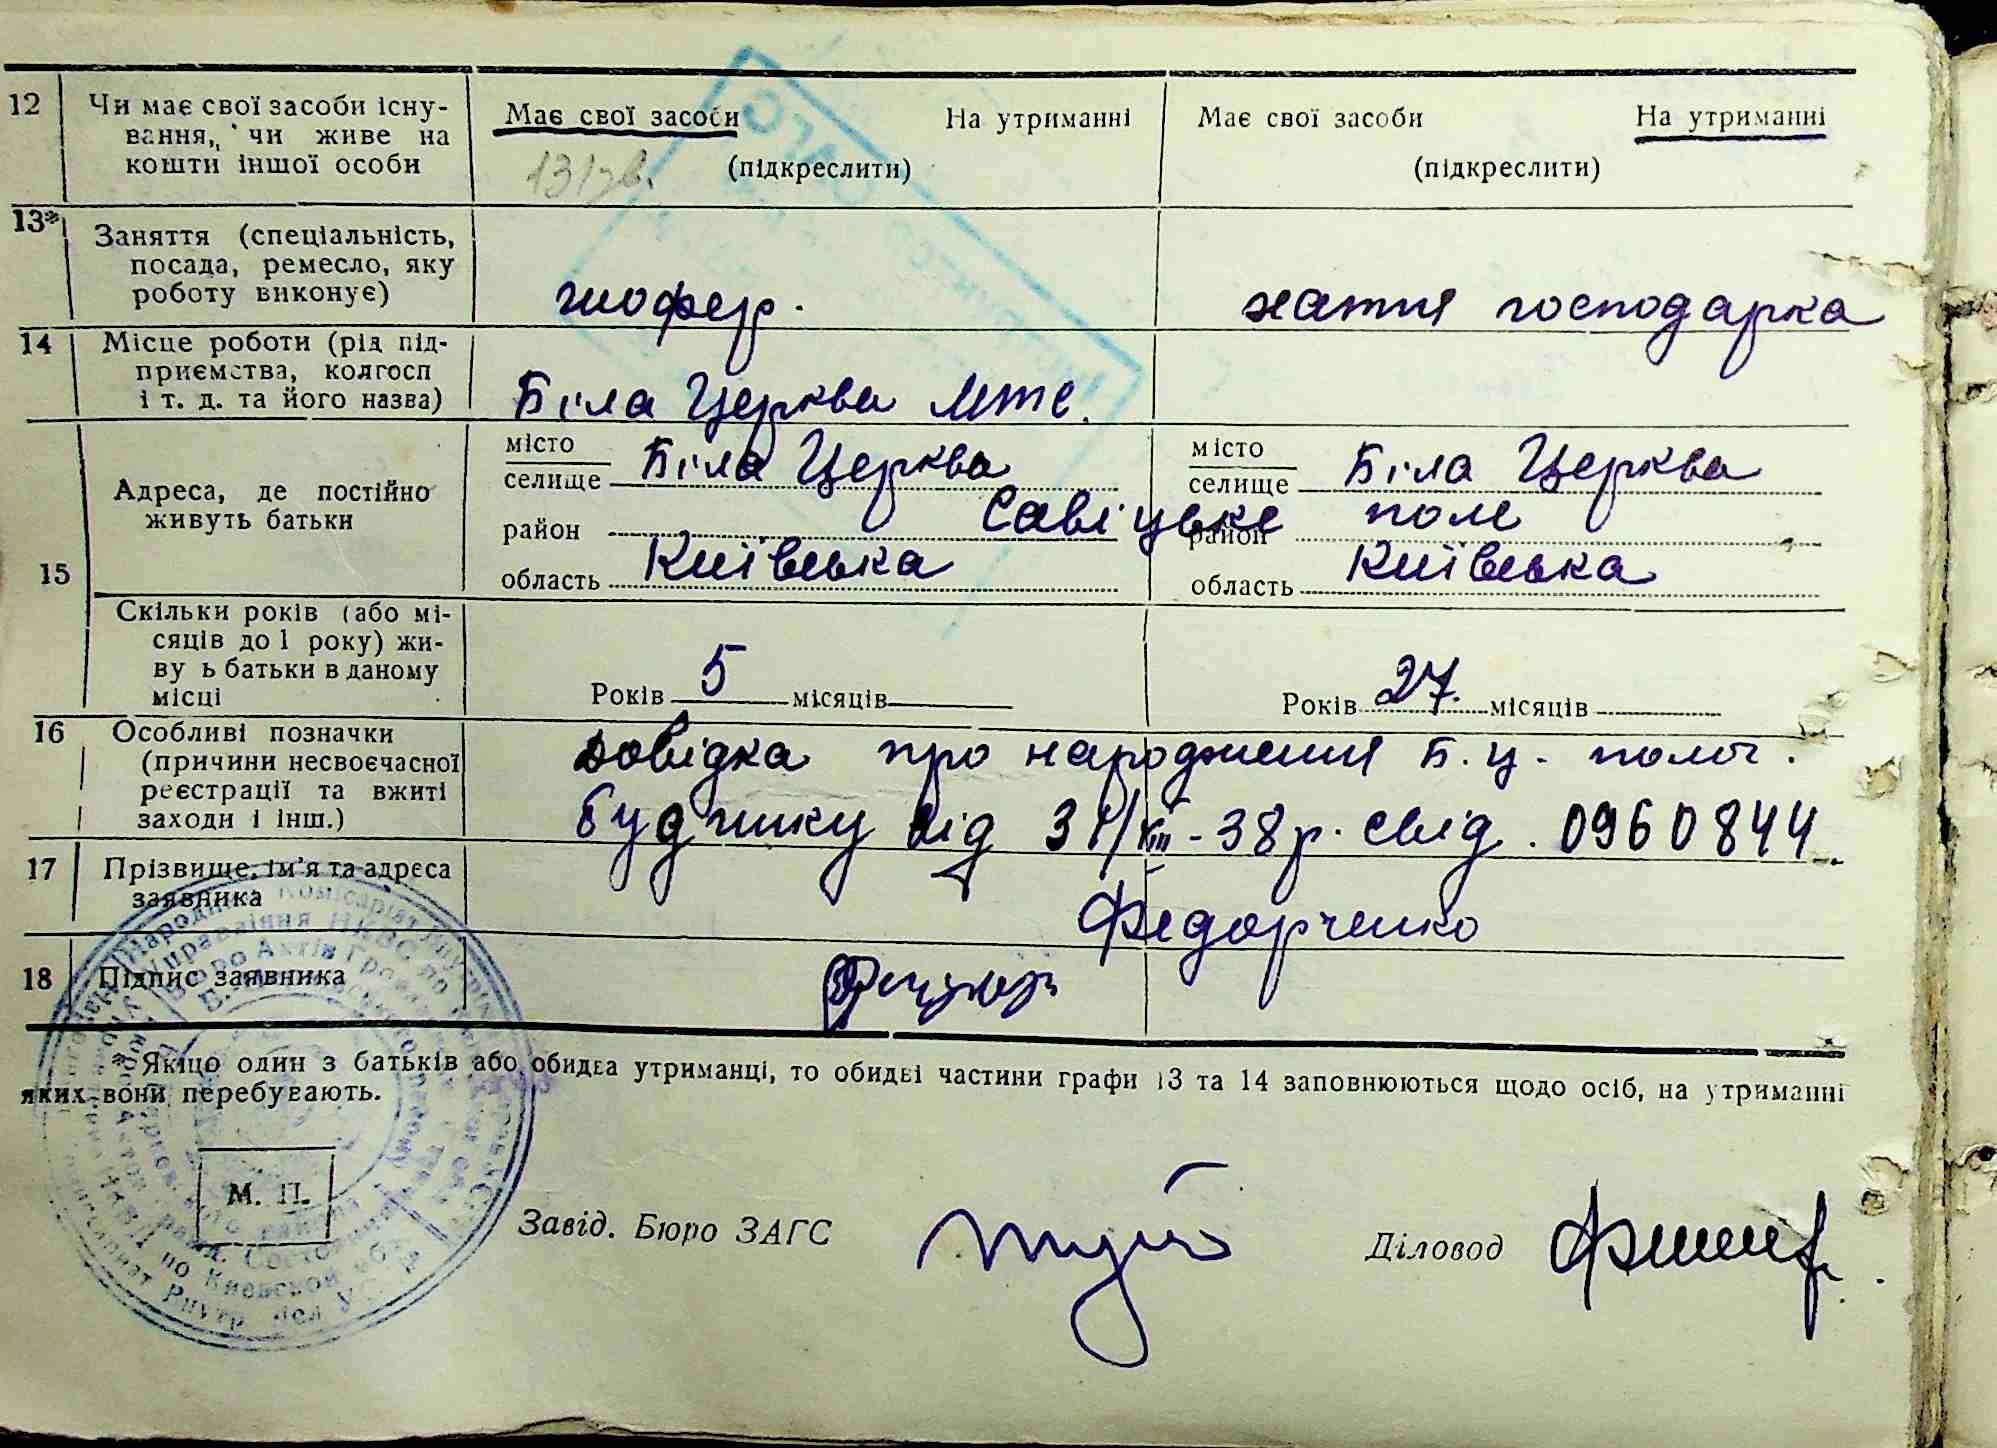 12 Чи має свої засоби існу- Має свої засоби На утриманні Має свої засоби На утриманні
вання, чи живе на
кошти іншої особи (підкреслити) (підкреслити)
13* Заняття (спеціальність,
посада, ремесло, яку
роботу виконує) шофер. хатня господарка
14 Місце роботи (рід під-
приємства, колгосп
і т. д. та його назва) Біла Церква МТС.
місто Біла Церква місто Біла Церква
селище селище
Адреса, де постійно
живуть батьки
район Савіцьке поле район
15 область Київська область Київська
Скільки років (або мі-
сяців до 1 року) жи-
ву ь батьки в даному
місці Років 5 місяців Років 27. місяців
16 Особливі позначки довідка про народження Б.Ц. полог.
(причини несвоєчасної
реєстрації та вжиті
заходи і інш.) будинку від 31/XII-38р. свід. 0960844
17 Прізвище, ім'я та адреса
заявника Федорченко
18 Підпис заявника
* Якщо один з батьків або обидва утриманці, то обидві частини графи 13 та 14 заповнюються щодо осіб, на утриманні
яких вони перебувають.
М. П.
Завід. Бюро ЗАГС Діловод